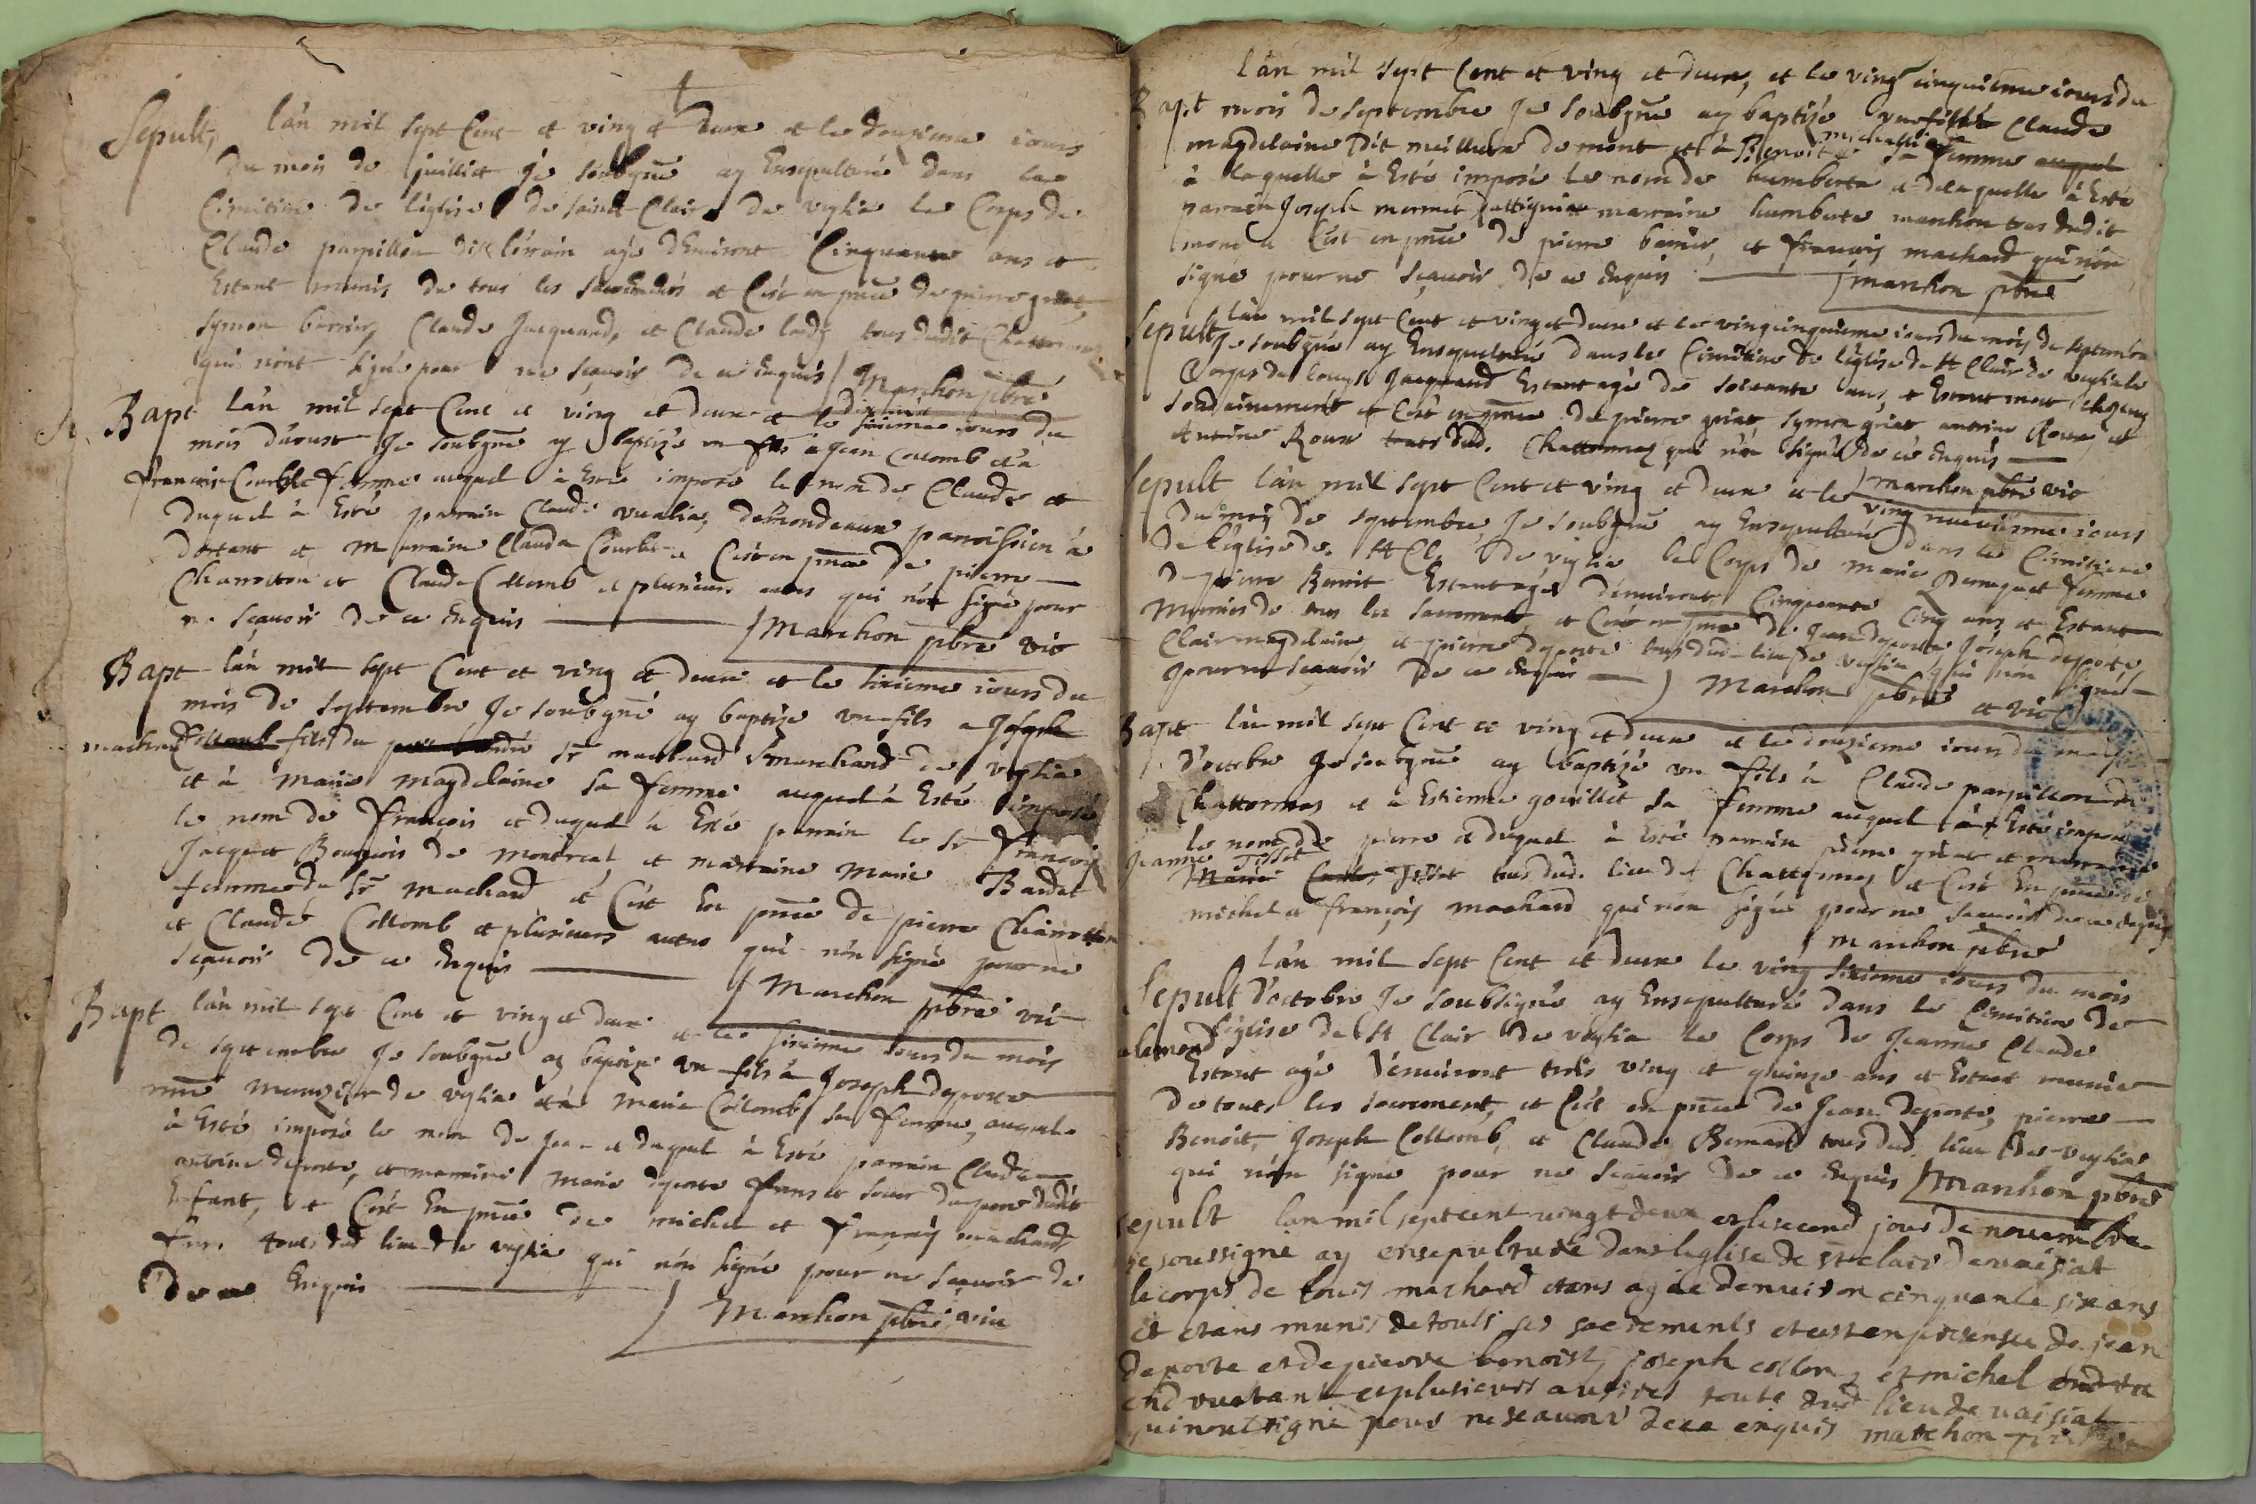 Sepult, lan mil sept Cent et ving et deux et le douzieme iours
du mois de juilliet Je soubgne ay Ensepulturé dans le
Cimitiere de leglise de saint Clair de veglia le Corps de
Claude papillon dit aagé denuiront Cinquante ans et
Estant munis de tous les sacrements et Cest en pnce de pierre griat,
symon Claude Jacquand, et Claude tous dudit Chattonnas
qui nont signé pour ne sçauoir de ce Enquis Marchon pbre
Bapt lan mil sept Cent et ving et deux et le dixieme iours du
mois daoust Je soubgne ay baptizé un fils à Jean Collomb et à
francoise Courbe femme auquel à Esté imposé le nom de Claude et
duquel à Esté parrain Claude vualia, paroissien à
dortant et Marraine Clauda Courbe et Cest en pnce de pierre
Chanotton et Claude Collomb et plusieurs autres qui nón signé pour
ne sçauoir de ce Enquis Marchon pbre vic
Bapt lan mil sept Cent et ving et deux et le sixieme iours du
mois de septembre Je soubgne ay baptize un fils a Joseph
machard Collomb fils du sr machard marchand de veglia
et à Marie magdelaine sa femme auquel à Esté imposé
le nom de françois et duquel à Esté parrain le sr françois
Jacquet Bourgeois de montreal et marraine Marie Bardet
femme du sr machard et Cest En pnce de pierre Chanotton
et Claude Collomb et plusieurs autres qui nón signé pour ne
sçauoir de ce Enquis
Marchon pbre vic
Bapt lan mil sept Cent et ving et deux et le sixieme iours du mois
de septembre Je soubgne ay baptizé un fils à Joseph deporte
me Munizier de veglia et à Marie Collomb sa femme, auquel
à Esté imposé le nom de Jean et duquel à Esté parrain Claude
antoine deporte, et marraine Marie deporte frere et sour du pere dudit
Enfant, et Cest En pnce de michel et françois machard
freres tous dud lieu de veglia qui nón signé pour ne sçauoir de
de ce Enquis
Marchon pbre vic
lan mil sept Cent et ving et deux, et le ving cinquieme iours du
Bapt mois de septembre Je soubgne ay baptizé une fille Claude
magdelaine dit meilleur de mont et à Benoite michallet sa femme auquel
à laquelle à Esté imposé le nom de humberte et de laquelle à Esté
parrain Joseph mermet marraine humberte marchon tous dudit
mont et Cest en pnce de pierre et françois machard qui nón
signé pour ne sçauoir de ce Enquis Marchon pbre
Sepult, lan mil sept Cent et ving et deux et le vingcinquieme iours du mois de septembre
Je soubgne ay Ensepulturé dans le Cimitiere de leglise de St Clair de veglia le
Corps de Jacquand Estant agé de soixante ans, et Estant mort
soudainement et Cest en pnce de pierre griat symon griat antoine Roux et
Roux tous dud. Chattonnas qui nón signé de ce Enquis
Marchon pbre vic
Sepult lan mil sept Cent et ving et deux et le ving neuuieme iours
du mois de septembre, Je soubgne ay Ensepulturé dans le Cimitiere
de leglise de St Cl. de veglia le Corps de Marie femme
de pierre Benoit Estant agé denuiront Cinquante Cinq ans et Estant
Munies de tous les sacrements, et Cest en pnce de Jean deporte Joseph deporte
Clair magdelaine, et pierre deporte tous dud. lieu de veglia qui nón signé
pour ne sçauoir de ce Enquis Marchon pbre et vic
Bapt lan mil sept Cent et ving et deux et le douzieme iours du mois
d'octobre Je soubgne ay baptizé un fils à Claude papillon de
Chattonnas et à Estienne gouillet sa femme auquel à Esté imposé
le nom de pierre et duquel à Esté parrain pierre griat et marraine
Jeanne Tissot Tissot tous dud. lieu de Chattonnas et Cest En pnce de
michel et françois machard qui nón signé pour ne sçauoir de ce Enquis
Marchon pbre
lan mil sept Cent et deux le ving sixieme iours du mois
Sepult d'octobre Je soubsigné ay Ensepulturé dans le Cimitiere de
leglise de St Clair de veglia le Corps de Jeanne Claude
Estant agé denuiront trois ving et quinze ans et Estant munie
de touts les sacrement, et Cest en pnce de Jean deporte, pierre
Benoit, Joseph Collomb, et Claude Bernard tous dud. lieu de veglia
qui nón signe pour ne sçauoir de ce Enquis Marchon pbre
Sepult lan mil septcent vingt deux et le second jour de nouembre
je soussigné ay ensepulturé dans leglise de st clair de vaisiat
le corps de louis machard etans agée denuiron cinquante six ans
et etans munis de touts ses sacrements et cest en presensse de jean
deporte et de pierre benoist, joseph collon, et michel
et plusieurs autres toute dud lieu de vaisiat
qui nont signé pour ne scauoir de ce enquis marchon